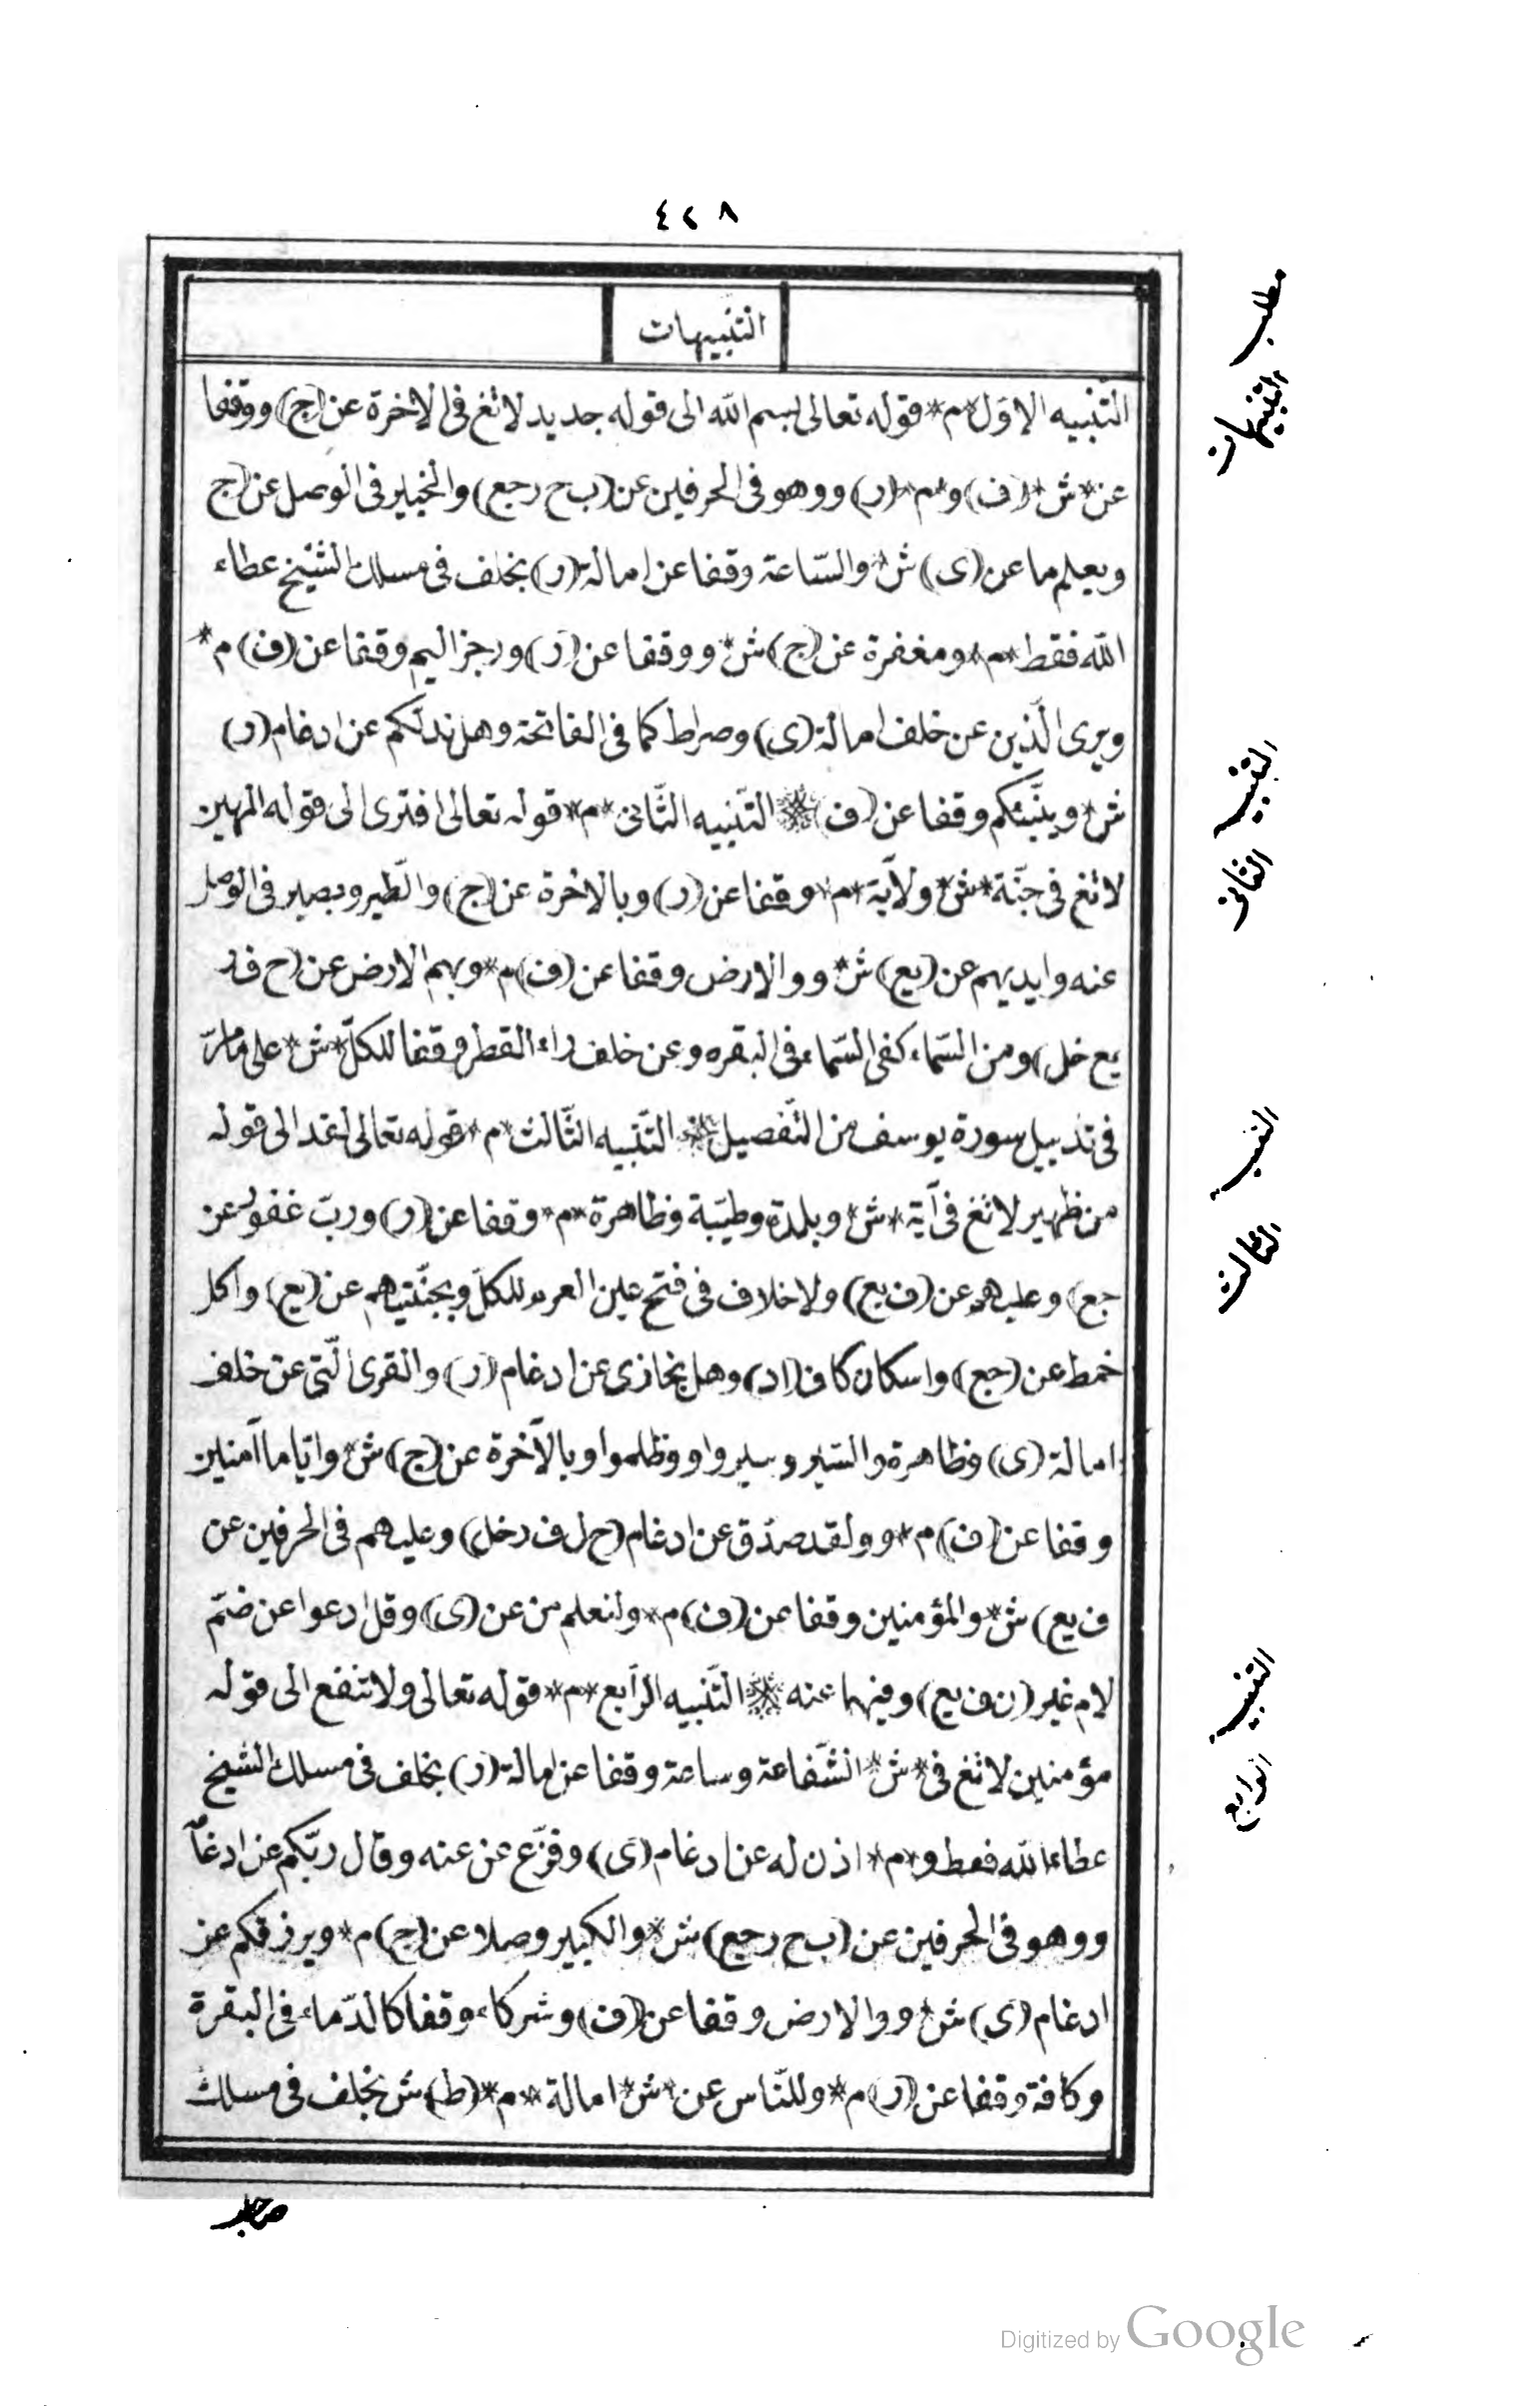 ٤٢٨
التنبيهات
التّنبيه الاوّل *م* قوله تعالى بسم الله الى قوله جديد لا تغ فى الاخرة عن (ج) ووقفا
عن *ش* (ف) و*م* (ر) ووهو فى الحرفين عن (ب ح رجع) والخبير فى الوصل عن (ج
ويعلم ما عن (ى) ش* والسّاعة وقفا عن امالة (ر) بخلف فى مسلك الشّيخ عطاء
الله فقط *م* ومغفرة عن (ج) ش* ووقفا عن (ر) ورجز اليم وقفا عن (ف) م*
ويرى الّذين عن خلف امالة (ى) وصراط كما فى الفاتحة وهل ندلّكم عن ادغام (ر)
ش* وينبّئكم وقفا عن (ف) * التّنبيه الثّانى *م* قوله تعالى افترى الى قوله المهين
لا تغ فى جنّة *ش* ولآية *م* وقفا عن (ر) وبالاخرة عن (ج) والطّير وبصير فى الوصل
عنه وايديهم عن (يع) ش* ووالارض وقفا عن (ف) م* وبهم الارض عن (ح ف ر
يع خل) ومن السّماء كفى السّماء فى البقره وعن خلف راء القطر وقفا للكلّ *ش* على ما مرّ
فى تذييل سورة يوسف من التّفصيل * التّنبيه الثّالث *م* قوله تعالى اعمد الى قوله
من ظهير لا تغ فى آية *ش* وبلدة وطيّبة وظاهرة *م* وقفا عن (ر) وربّ غفور عن
جع) وعليهم عن (ف يع) ولا خلاف فى فتح عين العرم للكلّ وبجنّتيهم عن (يع) واكل
خمط عن (جع) واسكان كاف (اد) وهل نجازى عن ادغام (ر) والقرى الّتى عن خلف
امالة (ى) وظاهرة والسّير وسيروا وظلموا وبالآخرة عن (ج) ش* وايّاما آمنين
وقفا عن (ف) م* وولقد صدّق عن ادغام (ح ل ف ر خل) وعليهم فى الحرفين عن
ف يع) ش* والمؤمنين وقفا عن (ف) م* ولنعلم من عن (ى) وقل ادعوا عن ضمّ
لام غير (ن ف يع) وفيهما عنه * التّنبيه الرّابع *م* قوله تعالى ولا تنفع الى قوله
مؤمنين لا تغ فى *ش* الشّفاعة وساعة وقفا عن امالة (ر) بخلف فى مسلك الشيخ
عطاء الله فقط و*م* اذن له عن ادغام (ى) وفزّع عن عنه وقال ربّكم عن ادغا
ووهو فى الحرفين عن (ب ح رجع) ش* والكبير وصلا عن (ج) م* ويرزقكم عن
ادغام (ى) ش* ووالارض وقفا عن (ف) وشركاء وقفا كالدّماء فى البقرة
وكافة وقفا عن (ر) م* وللنّاس عن *ش* امالة *م* (ط) ش بخلف فى مسلك
مطلب
التنبيهات
التنبيه
الثانى
التنبيه
الثالث
التنبيه
الرابع
Digitized by Google